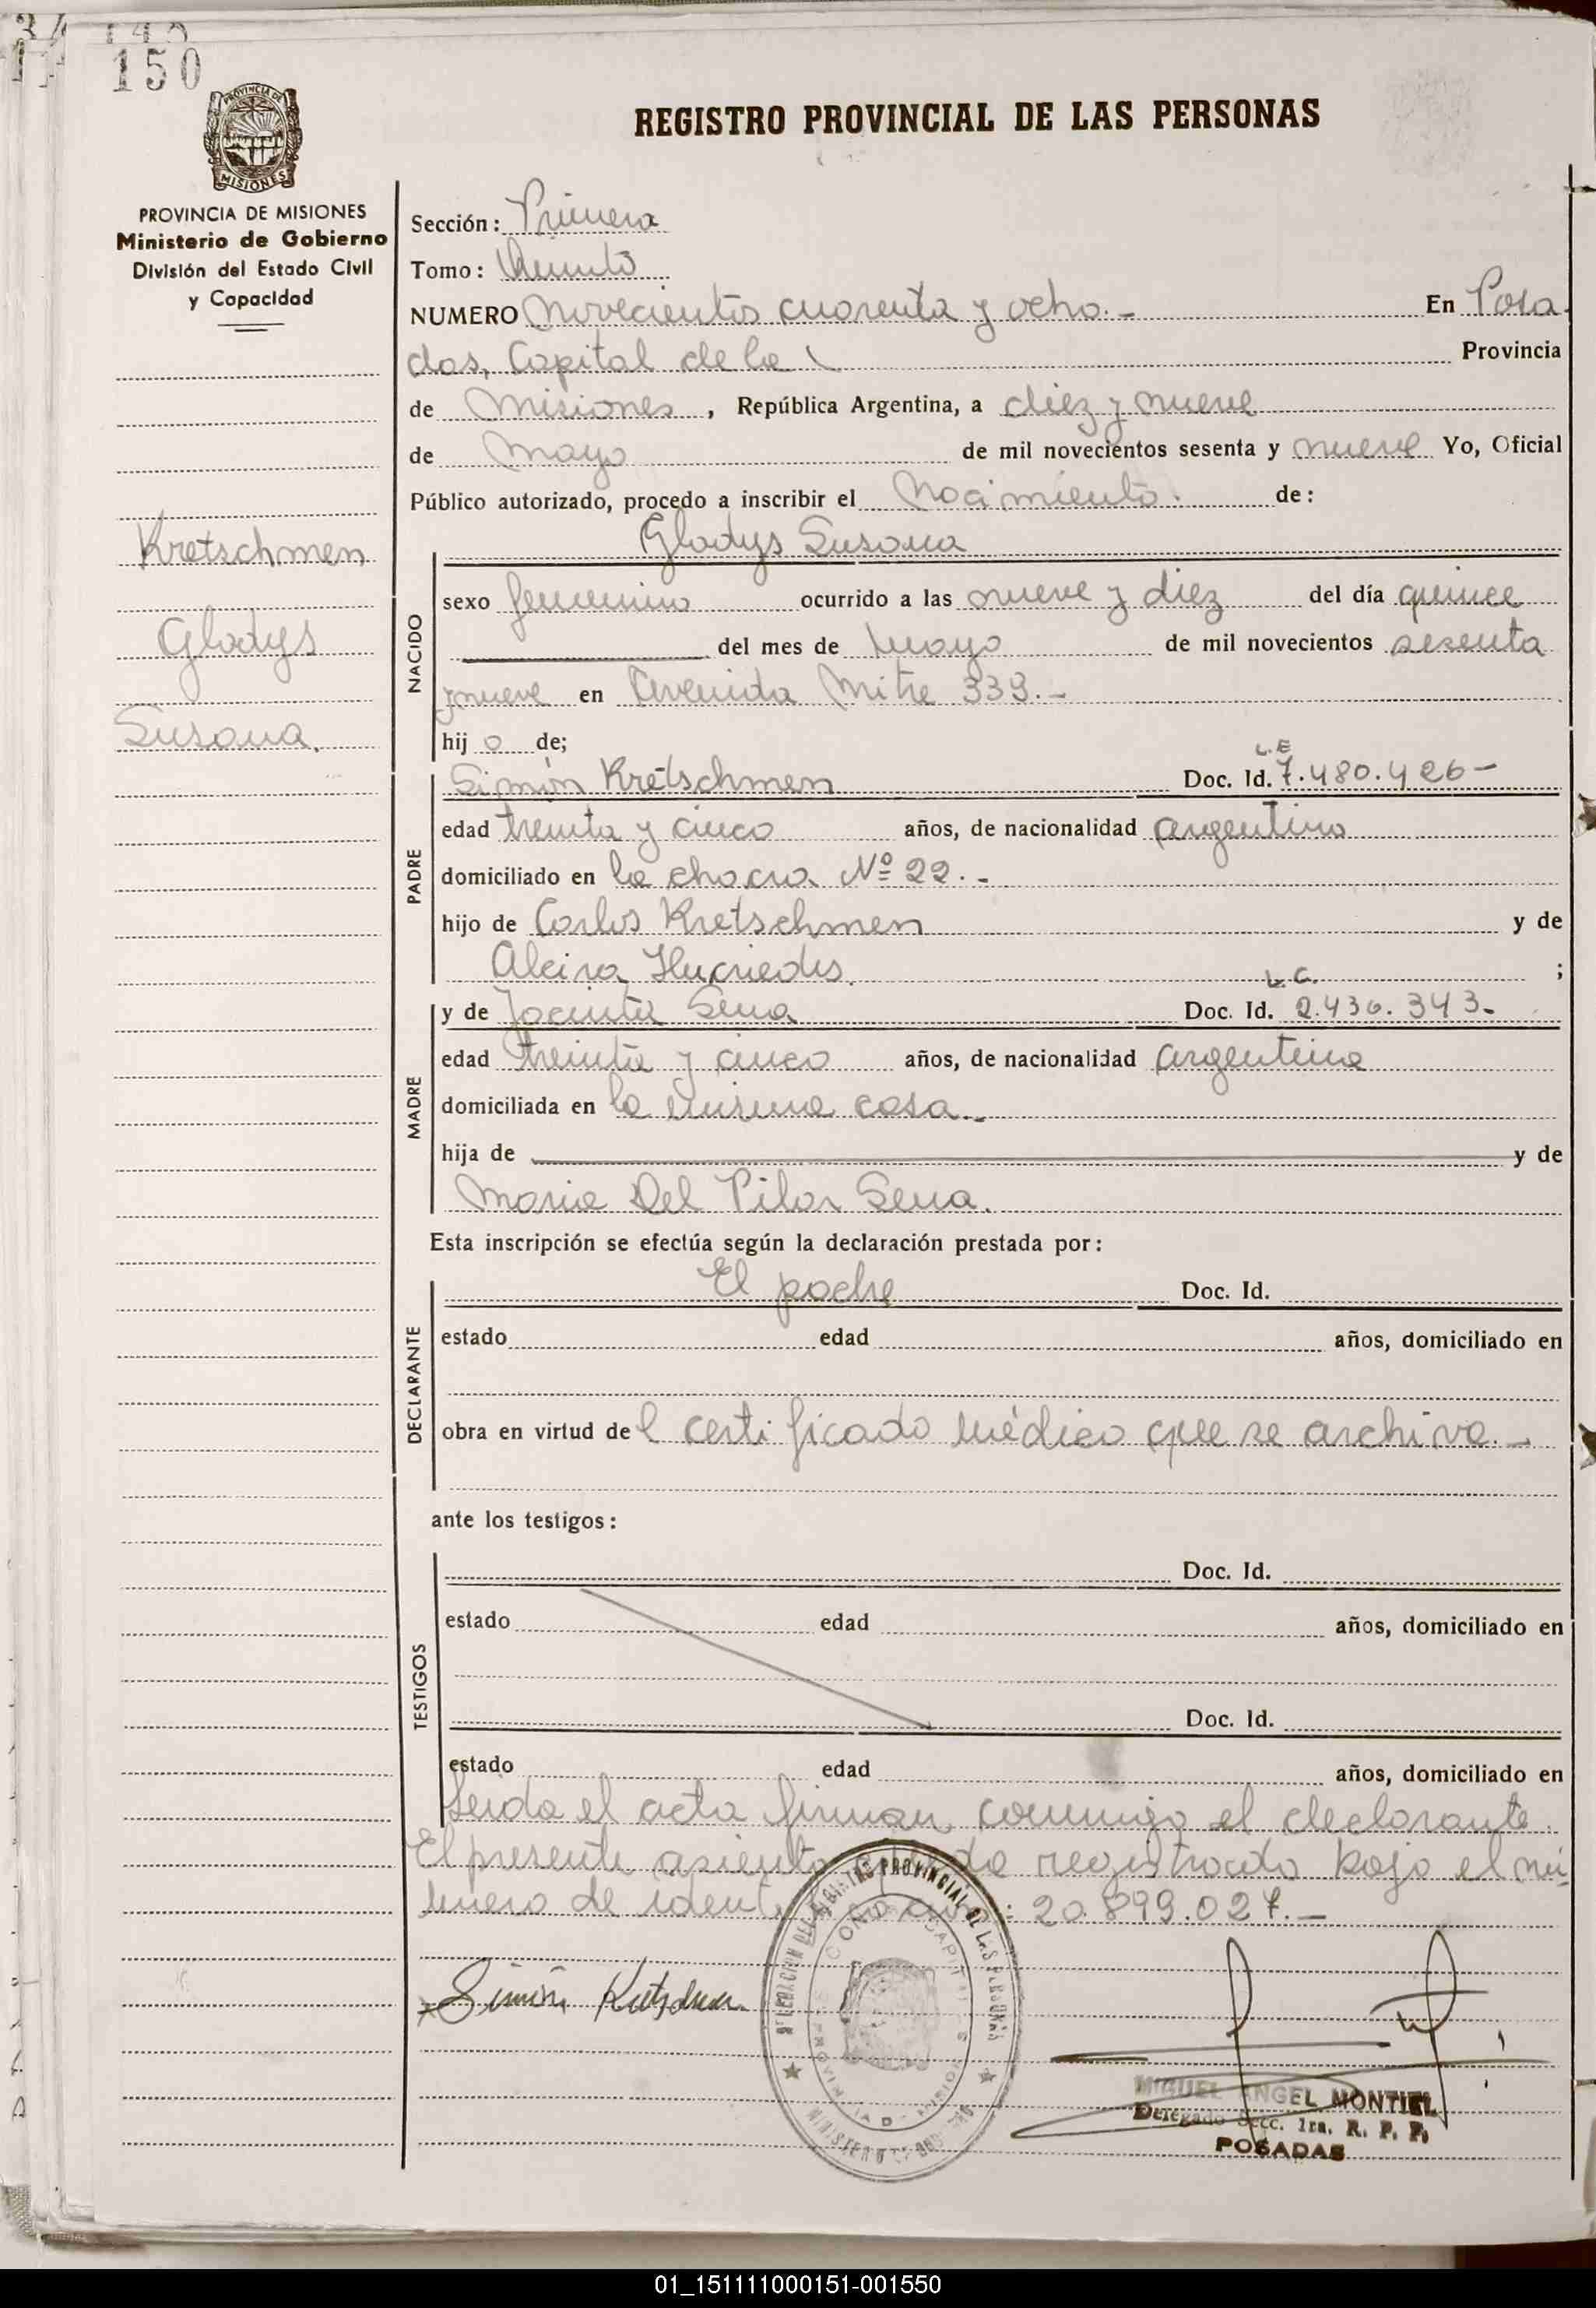 150
REGISTRO PROVINCIAL DE LAS PERSONAS
PROVINCIA DE MISIONES
Ministerio de Gobierno
División del Estado Civil
y Capacidad
Kretschmen
Gladys
Susana.
Sección: Primera
Tomo: Quinto
NUMERO Novecientos cuarenta y ocho.- En Posa
das, Capital de la Provincia
de Misiones, República Argentina, a diez y nueve
de mayo de mil novecientos sesenta y nueve Yo, Oficial
Público autorizado, procedo a inscribir el Nacimiento. de:
NACIDO
Gladys Susana
sexo femenino ocurrido a las nueve y diez del día quince
del mes de Mayo de mil novecientos sesenta
y nueve en Avenida Mitre 339.-
hij a de;
PADRE
L.E
Simón Kretschmen Doc. Id. 7.480.426-
edad treinta y cinco años, de nacionalidad argentino
domiciliado en la chacra Nº 22.-
hijo de Carlos Kretschmen y de
Alcira ;
MADRE
L.C.
y de Jacinta Sena Doc. Id. 2.430.343-
edad treinta y cinco años, de nacionalidad argentina
domiciliada en la misma casa.-
hija de y de
Maria Del Pilar Sena.
Esta inscripción se efectúa según la declaración prestada por:
DECLARANTE
El padre Doc. Id.
estado edad años, domiciliado en
obra en virtud del certificado médico que se archiva.-
ante los testigos:
TESTIGOS
Doc. Id.
estado edad años, domiciliado en
Doc. Id.
estado edad años, domiciliado en
Leida el acta firman conmigo el declarante.
El presente asiento queda registrado bajo el nú-
mero de : 20.899.027.-
Simón Kretschmen
MIGUEL ANGEL MONTIEL
Delegado Secc. 1ra. R. P. P.
POSADAS
01_151111000151-001550